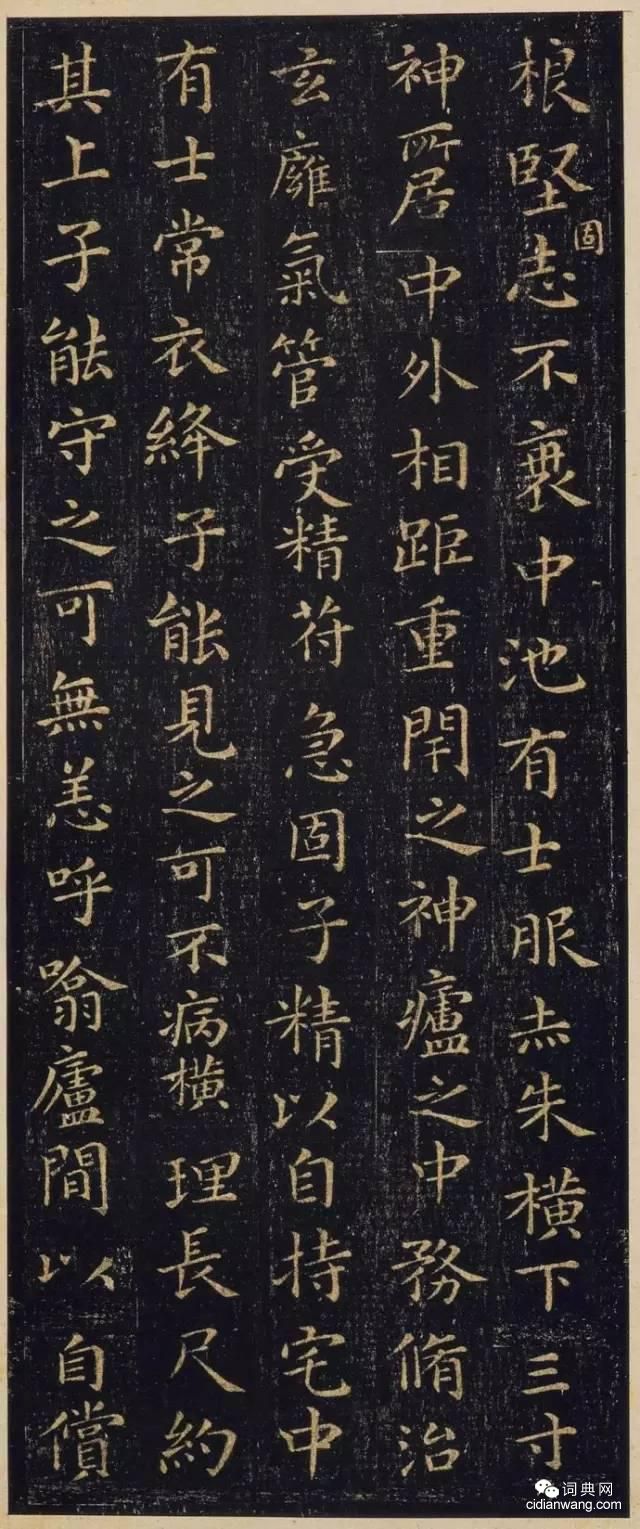 根堅固志不衰中池有士服赤朱橫下三寸
神所居中外相距重閇之神廬之中務脩治
玄廱氣管受精苻急固子精以自持宅中
有士常衣絳子能見之可不病橫理長尺約
其上子能守之可無恙呼噏廬間以自償
词典网
cidianwang.com